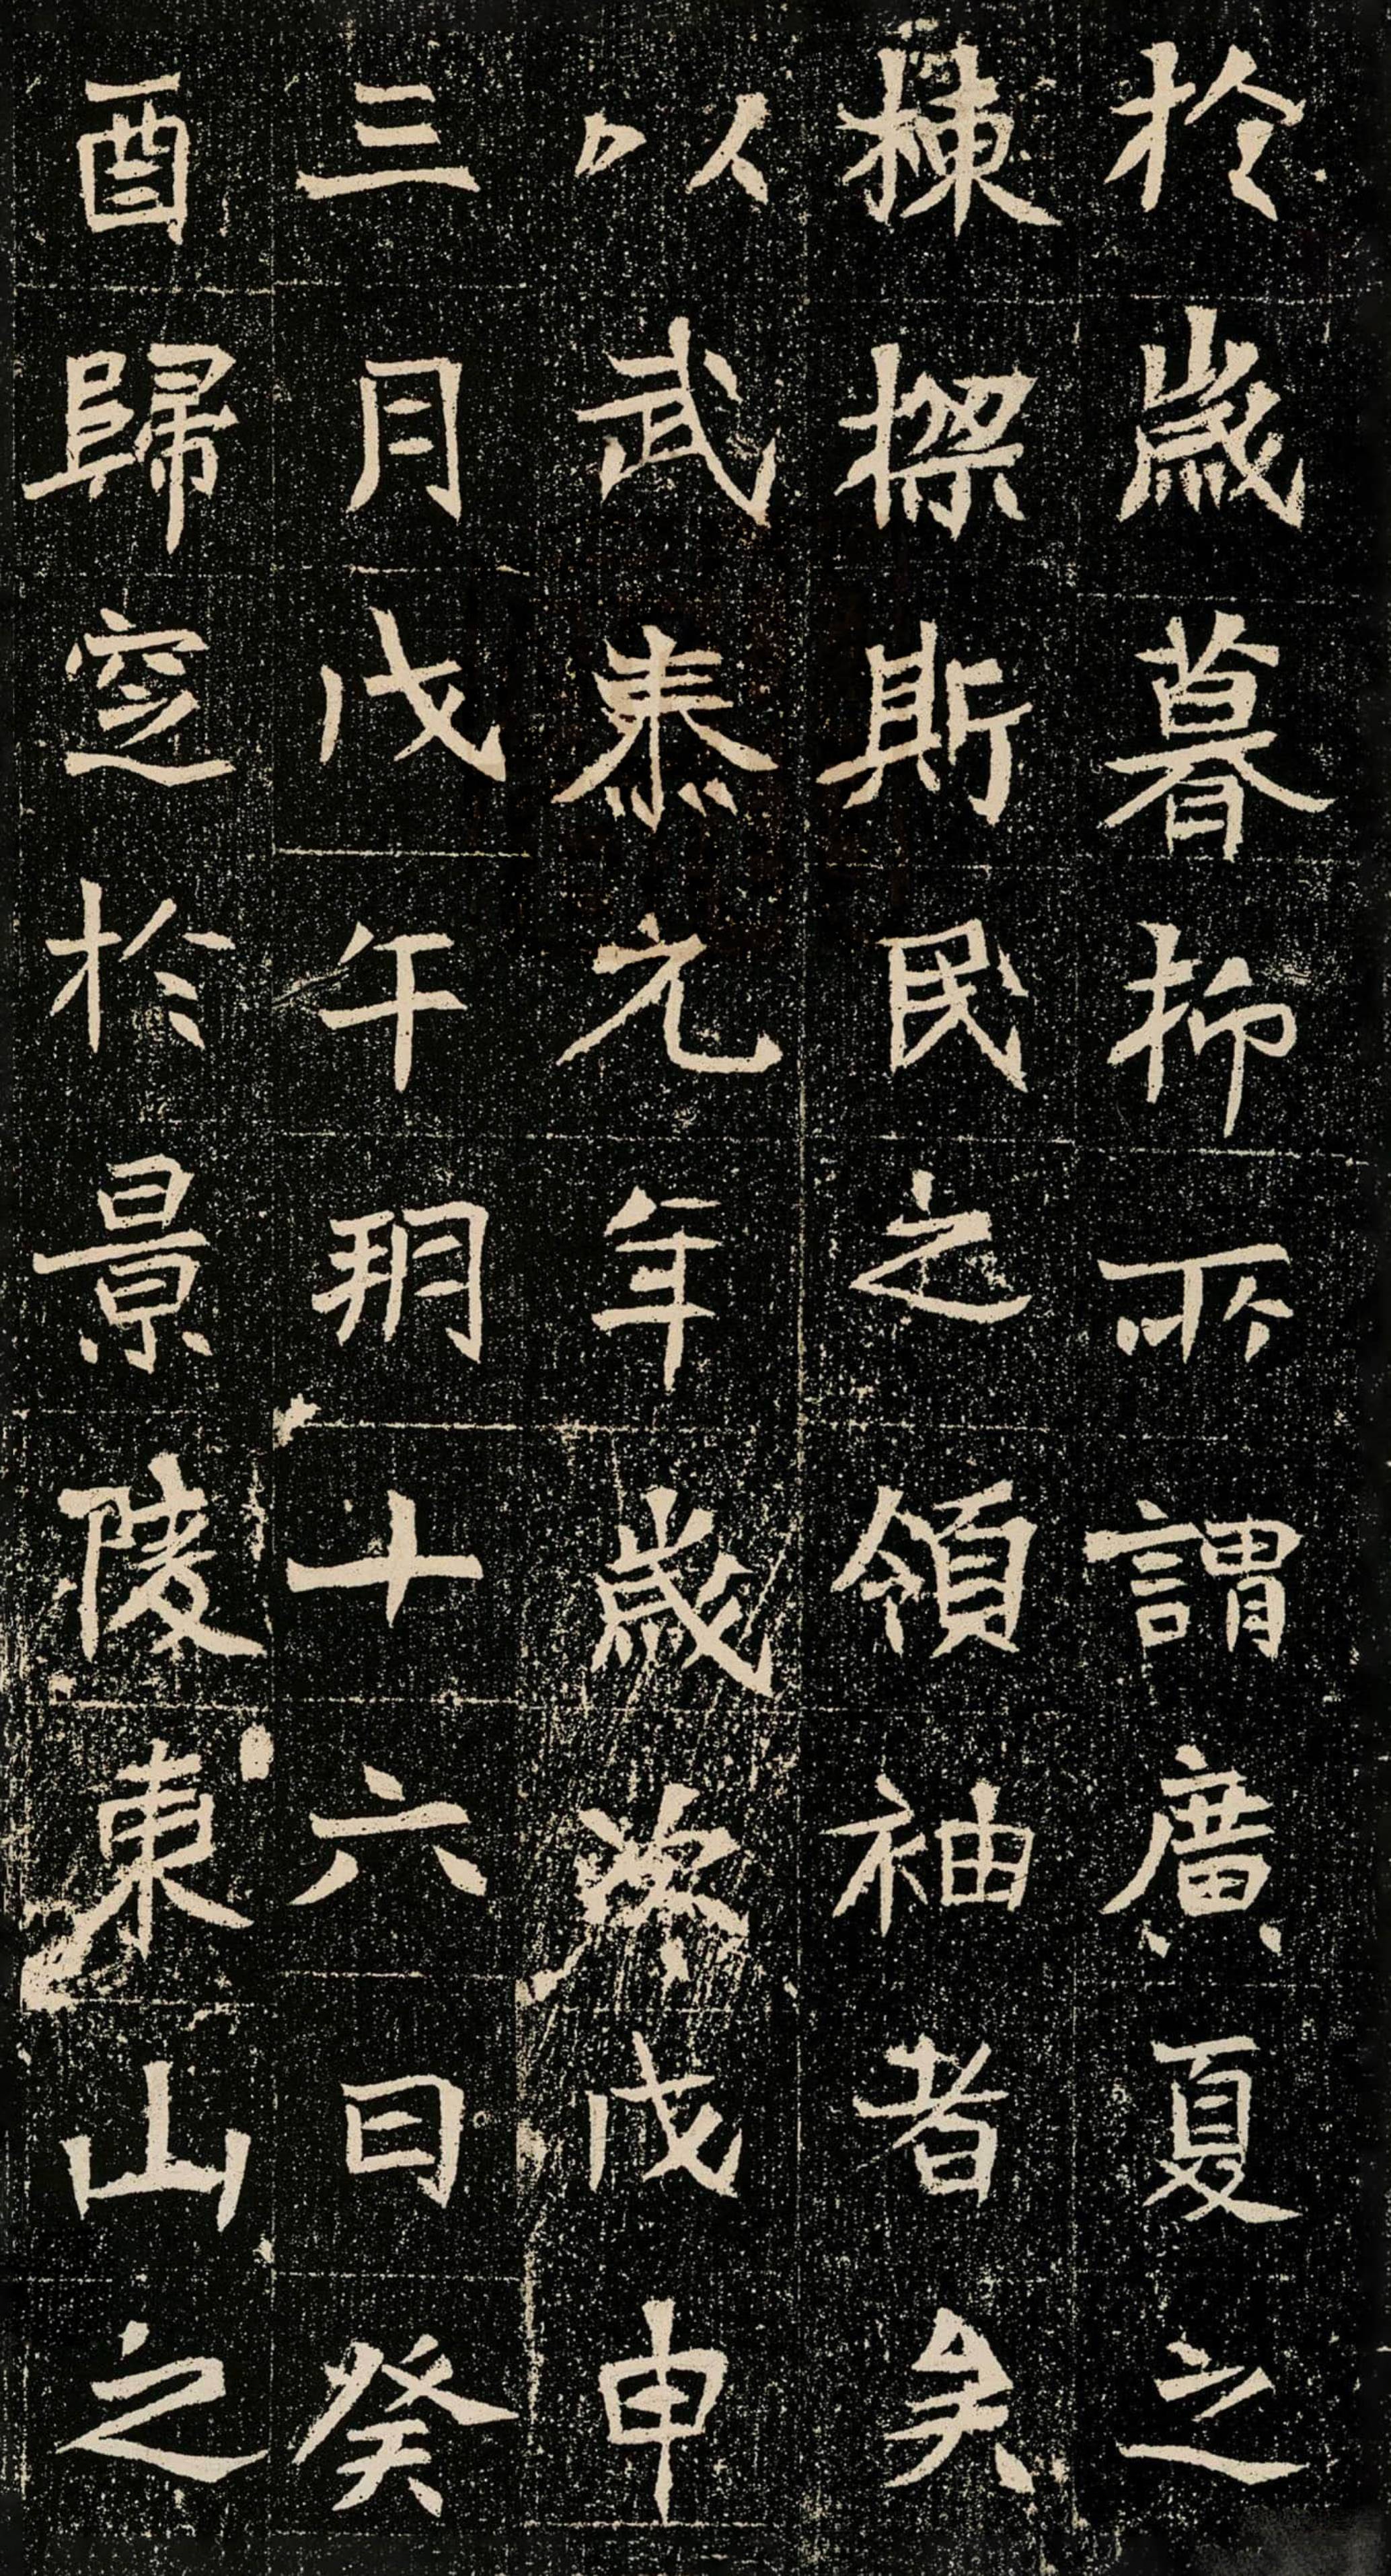 於歲暮抑所謂廣夏之
棟樑斯民之領袖者矣
以武泰元年歲次戊申
三月戊午朔十六日癸
酉歸窆於景陵東山之